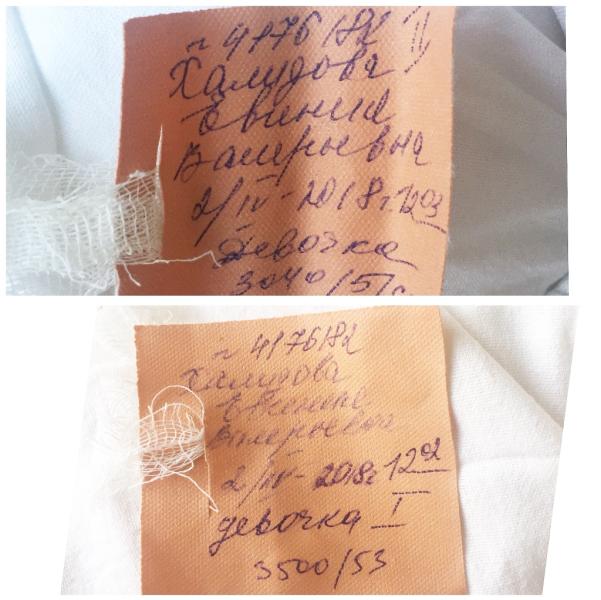 г 4176182 II
Халудова
Евгения
Валерьевна
2/IV - 2018г. 12 03
девочка
3040/51
г 4176182
Халудова
Евгения
Валерьевна
2/IV - 2018г 12 02
девочка I
3500/53